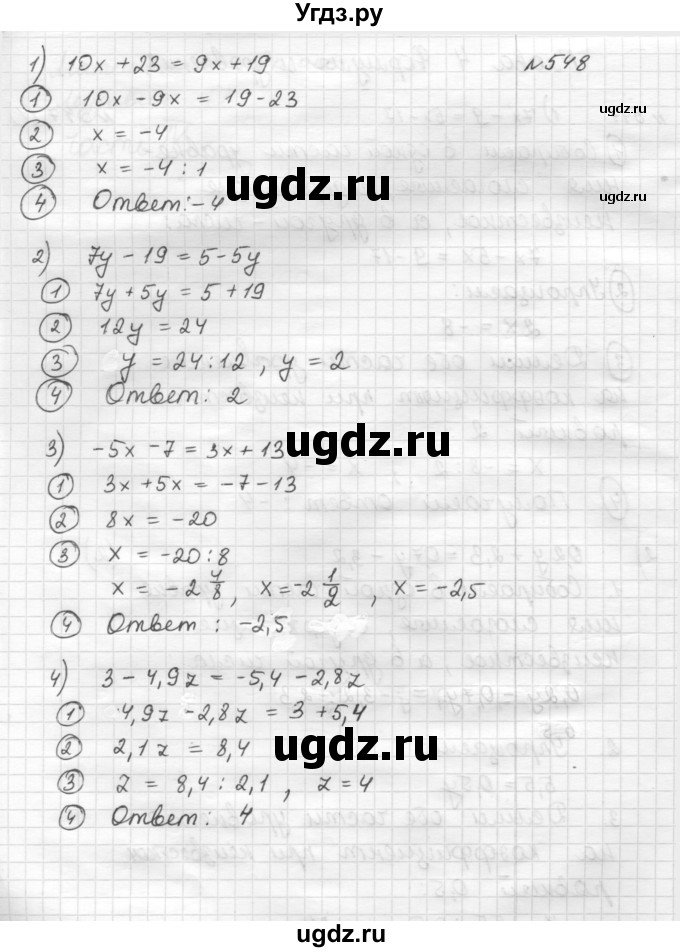 Угдз.ру
№548
1) 10x + 23 = 9x + 19
① 10x - 9x = 19 - 23
② x = -4
③ x = -4 : 1
④ Ответ: -4
2) 7y - 19 = 5 - 5y
① 7y + 5y = 5 + 19
② 12y = 24
③ y = 24 : 12 , y = 2
④ Ответ: 2
3) -5x - 7 = 3x + 13
① 3x + 5x = -7 - 13
② 8x = -20
③ x = -20 : 8
x = -2 4/8 , x = -2 1/2 , x = -2,5
④ Ответ : -2,5
4) 3 - 4,9z = -5,4 - 2,8z
① 4,9z - 2,8z = 3 + 5,4
② 2,1z = 8,4
③ z = 8,4 : 2,1 , z = 4
④ Ответ: 4
ugdz.ru
ugdz.ru
ugdz.ru
ugdz.ru
ugdz.ru
ugdz.ru
ugdz.ru
ugdz.ru